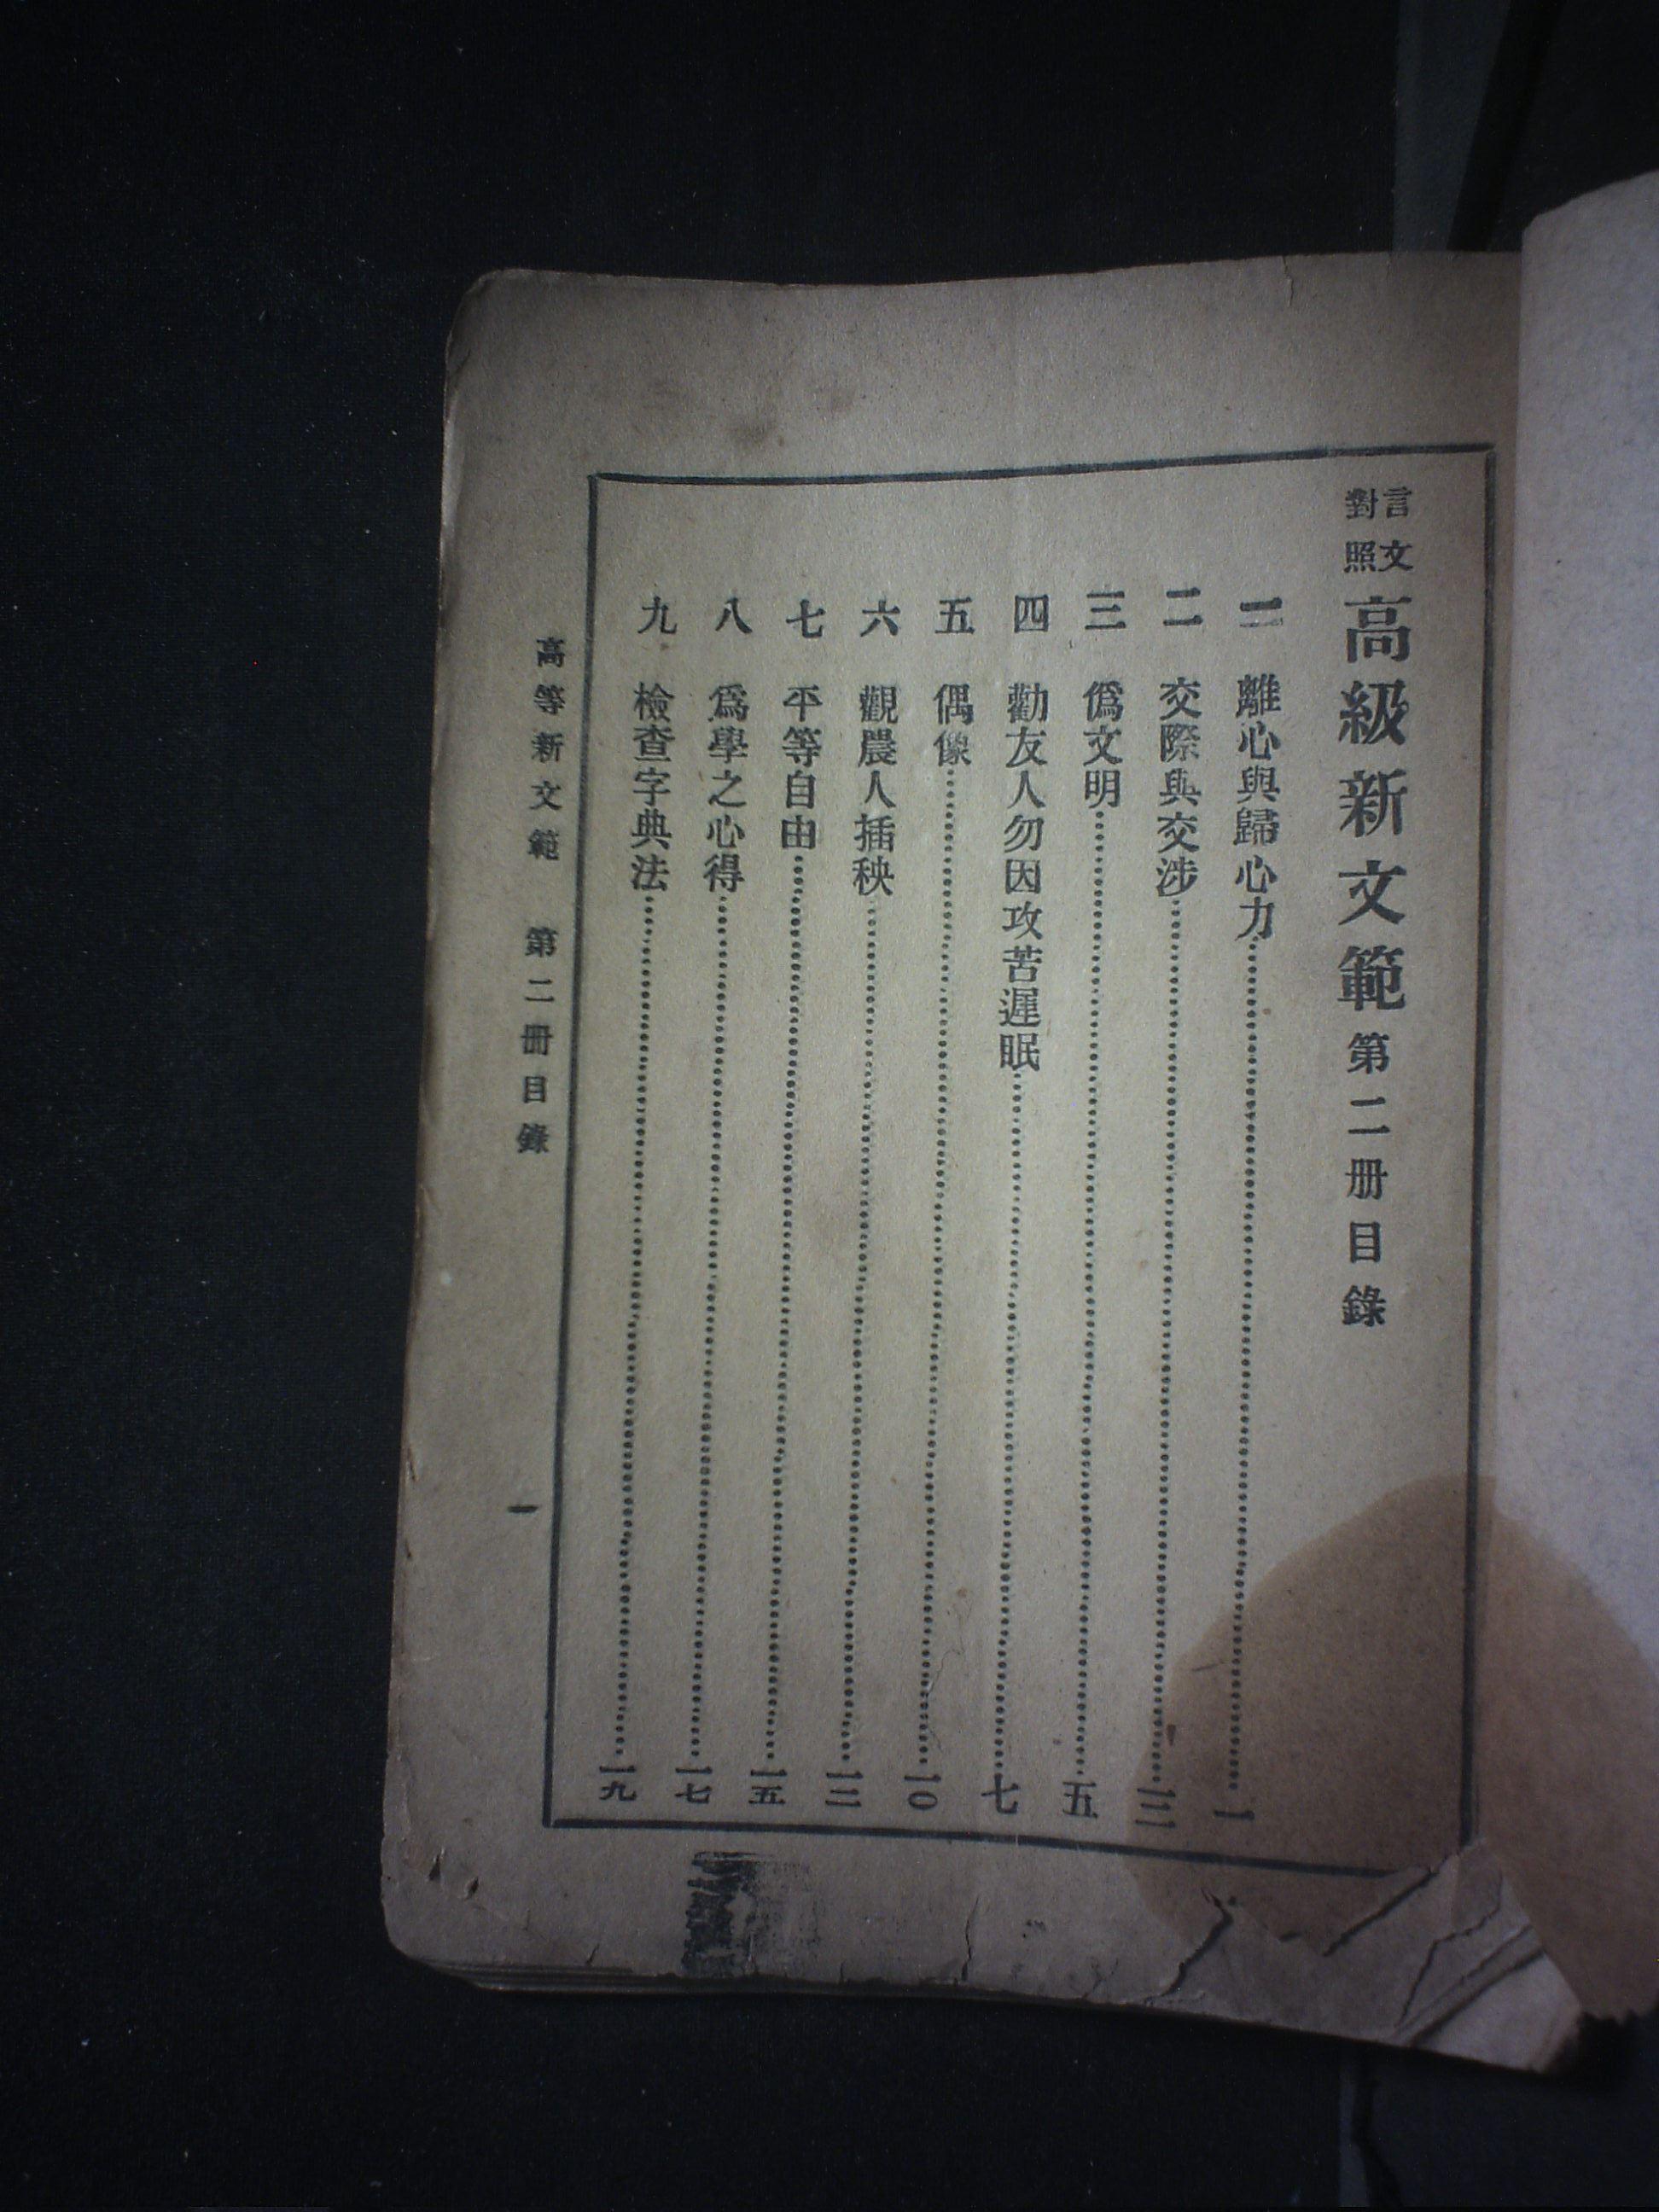 言文對照高級新文範第二册目錄
一 離心與歸心力……一
二 交際與交涉……三
三 僞文明……五
四 勸友人勿因攻苦遲眠……七
五 偶像……一〇
六 觀農人插秧……一二
七 平等自由……一五
八 爲學之心得……一七
九 檢查字典法……一九
高等新文範 第二冊目錄 一